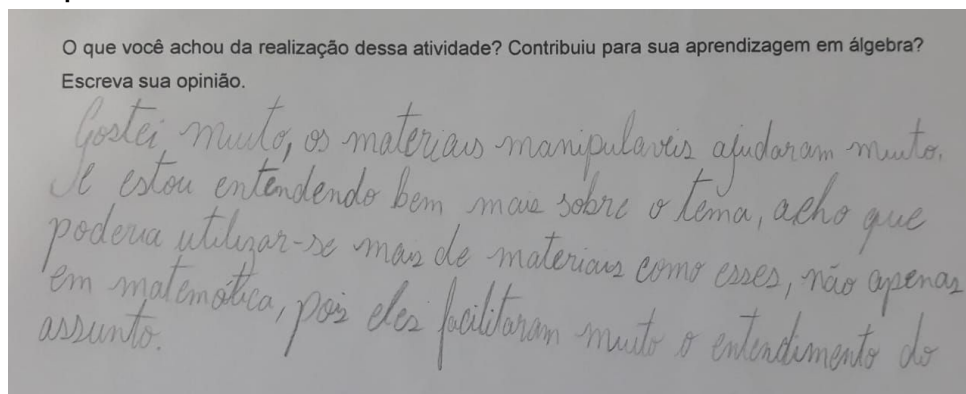 O que você achou da realização dessa atividade? Contribuiu para sua aprendizagem em álgebra?
Escreva sua opinião.
Gostei muito, os materiais manipulaveis ajudaram muito.
E estou entendendo bem mais sobre o tema, acho que
poderia utilizar-se mais de materiais como esses, não apenas
em matemática, pois eles facilitaram muito o entendimento do
assunto.